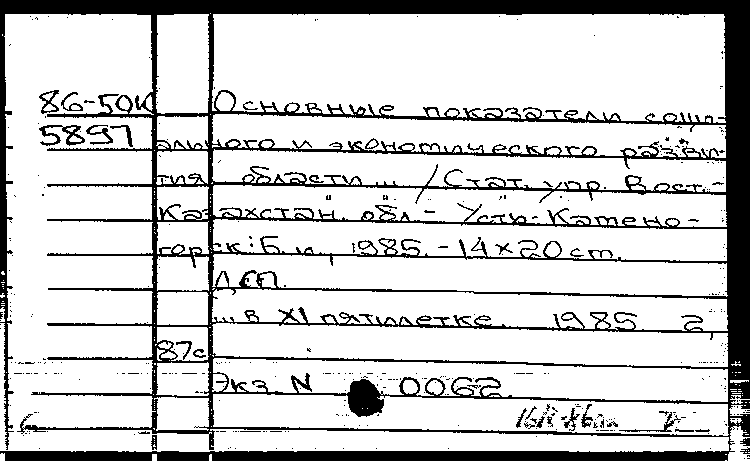 86-50К Основные показатели соци-
5897 ального и экономического разви-
тия области ... / Стат. упр. Вост.-
Казахстан. обл. - Усть-Камено-
горск: Б. и., 1985. - 14×20 ст.
ДСП.
... в XI пятилетке. 1985 2,
87с
Экз N 0062.